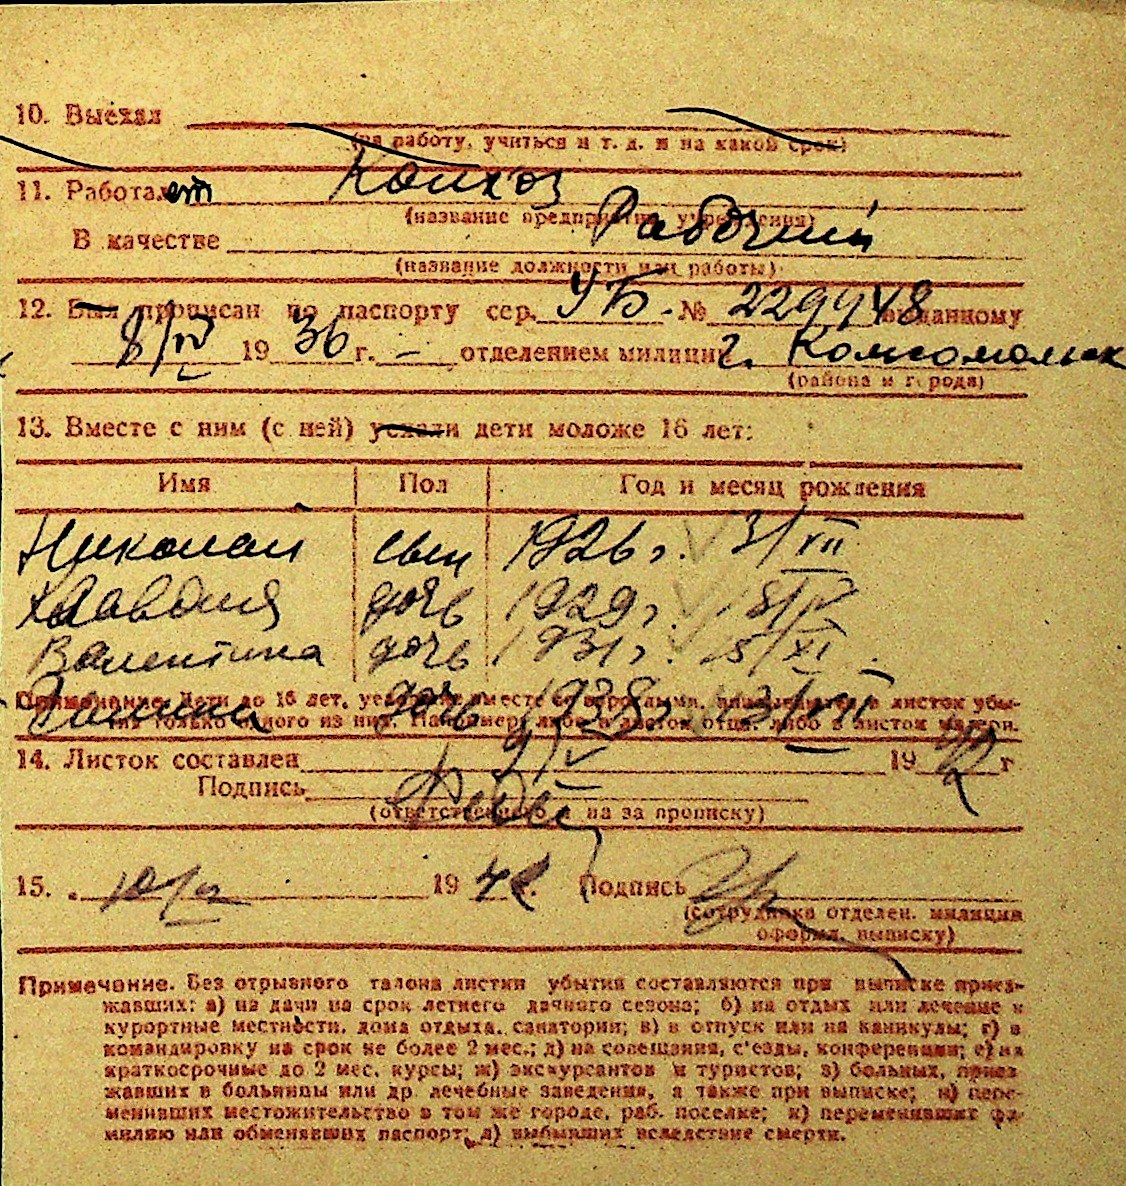 10. Выехал
(на работу, учиться и т. д. и на какой срок)
11. Работает Колхоз
(название предприятия, учреждения)
В качестве Рабочий
(название должности или работы)
12. Был прописан по паспорту сер. УБ. № выданному
8/IV 1936 г. — отделением милиции г. Комсомольск
(района и города)
13. Вместе с ним (с ней) уехали дети моложе 16 лет:
Имя Пол Год и месяц рождения
Николай сын 1926 г. 3/VII
Клавдия дочь 1929 г. 18/IV
Валентина дочь 1931 г. 15/XI
Примечание. Дети до 16 лет, уехавшие вместе со взрослыми, вписываются в листок убы-
тия только одного из них. Например: либо в листок отца, либо в листок матери.
дочь 1938
14. Листок составлен 9/V 1942 г
Подпись
(ответственного лица за прописку)
15. 194 г. Подпись
(сотрудника отделен. милиции
оформ. выписку)
Примечание. Без отрывного талона листки убытия составляются при выписке приез-
жавших: а) на дачи на срок летнего дачного сезона; б) на отдых или лечение в
курортные местности, дома отдыха, санатории; в) в отпуск или на каникулы; г) в
командировку на срок не более 2 мес.; д) на совещания, с'езды, конференции; е) на
краткосрочные до 2 мес. курсы; ж) экскурсантов и туристов; з) больных, приез-
жавших в больницы или др. лечебные заведения, а также при выписке; и) пере-
менивших местожительство в том же городе, раб. поселке; к) переменивших фа-
милию или обменявших паспорт; л) выбывших вследствие смерти.